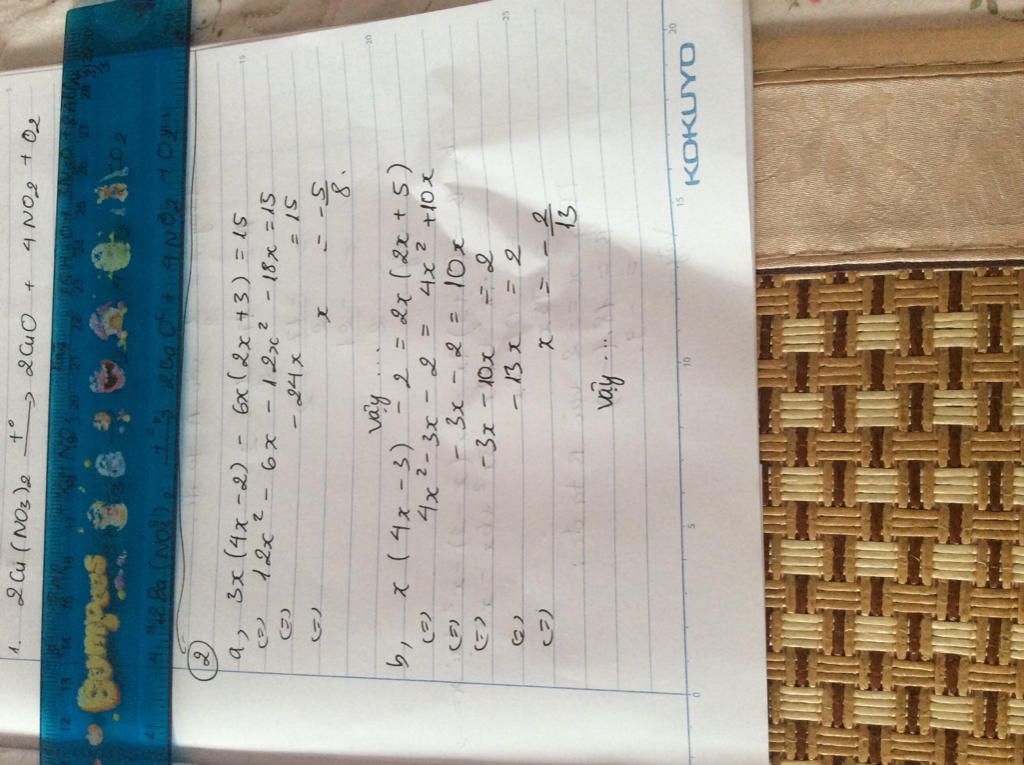 1. 2Cu(NO3)2 t° → 2CuO + 4NO2 + O2
Bumpees
② a, 3x(4x-2) - 6x(2x+3) = 15
(=) 12x² - 6x - 12x² - 18x = 15
(=) - 24x = 15
(=) x = - 5/8.
Vậy ...
b, x(4x-3) - 2 = 2x(2x+5)
(=) 4x² - 3x - 2 = 4x² + 10x
(=) - 3x - 2 = 10x
(=) -3x - 10x = 2
(=) - 13x = 2
(=) x = - 2/13
Vậy ...
KOKUYO